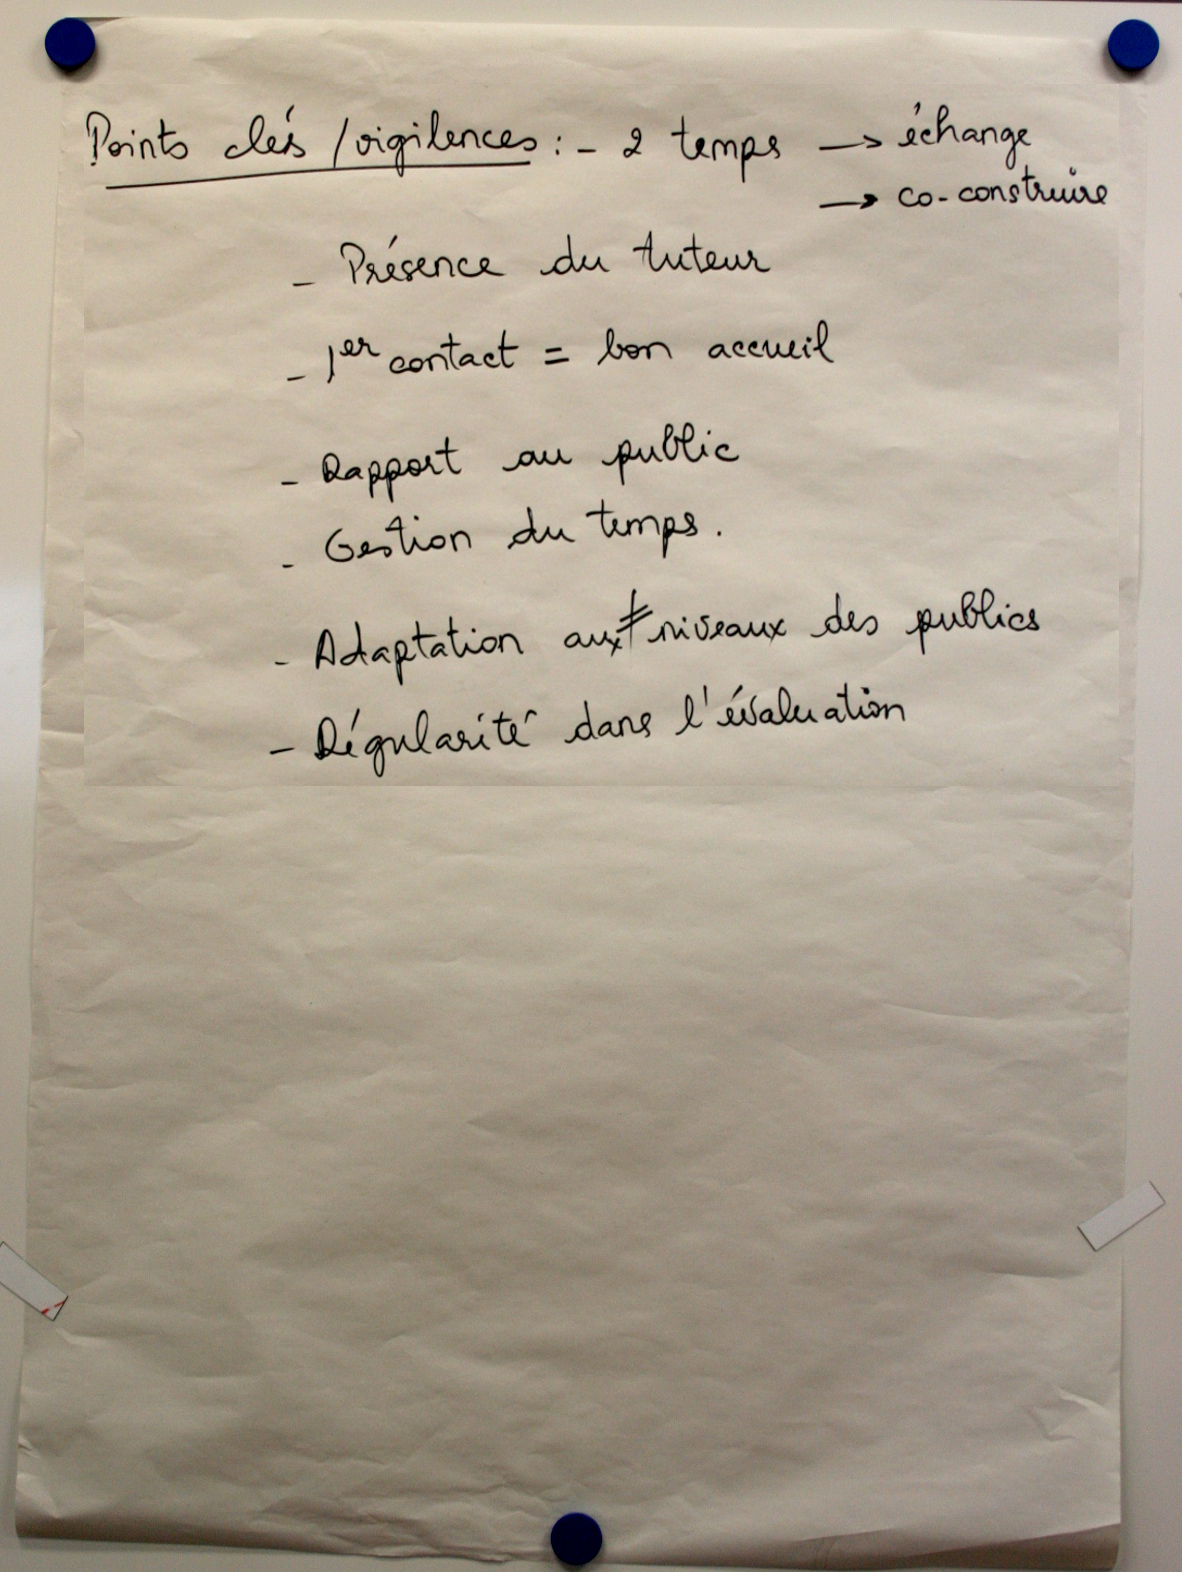 Points clés / vigilences : - 2 temps → échange
→ co-construire
- Présence du tuteur
- 1er contact = bon accueil
- Rapport au public
- Gestion du temps.
- Adaptation aux ≠ niveaux des publics
- Régularité dans l'évaluation